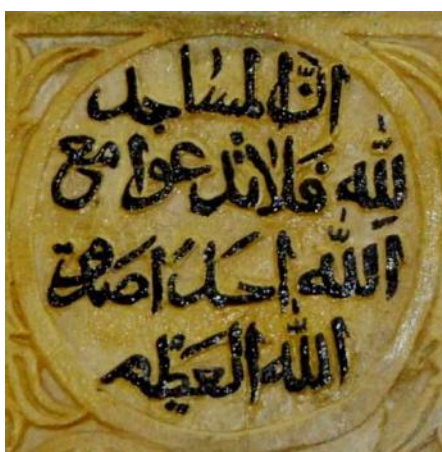 انّ المساجد
لله فَلا تدعوا مع
الله احداً صدق
الله العظيم